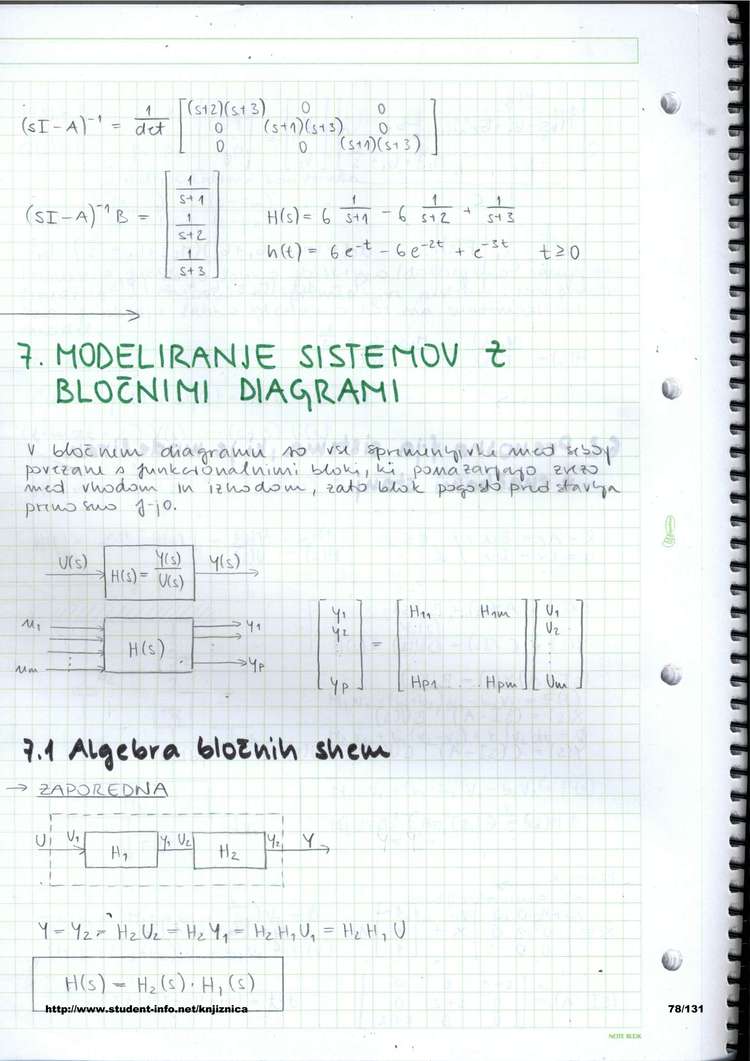 (sI-A)⁻¹ = 1/det [(s+2)(s+3) 0 0
0 (s+1)(s+3) 0
0 0 (s+1)(s+3)]
(sI-A)⁻¹ B = [1/(s+1) 1/(s+2) 1/(s+3)]
H(s) = 6 1/(s+1) - 6 1/(s+2) + 1/(s+3)
h(t) = 6e^(-t) - 6e^(-2t) + e^(-3t) t≥0
7. MODELIRANJE SISTEMOV Z
BLOČNIMI DIAGRAMI
V bločnem diagramu so vse spremenljivke med seboj
povezane s funkcionalnimi bloki, ki ponazarjajo zvezo
med vhodom in izhodom, zato blok pogosto predstavlja
prenosno f-jo.
U(s) H(s) = Y(s)/U(s) Y(s)
u₁ H(s) y₁
um ⋮ yp
[y₁ y₂ ⋮ yp] = [H₁₁ .. H₁m ⋮ Hp₁ .. Hpm] [U₁ U₂ ⋮ Um]
7.1 Algebra bločnih shem
→ ZAPOREDNA
U U₁ H₁ Y₁ U₂ H₂ Y₂ Y
Y = Y₂ = H₂U₂ = H₂Y₁ = H₂H₁U₁ = H₂H₁U
H(s) = H₂(s)·H₁(s)
http://www.student-info.net/knjiznica
78/131
NOTE BOOK